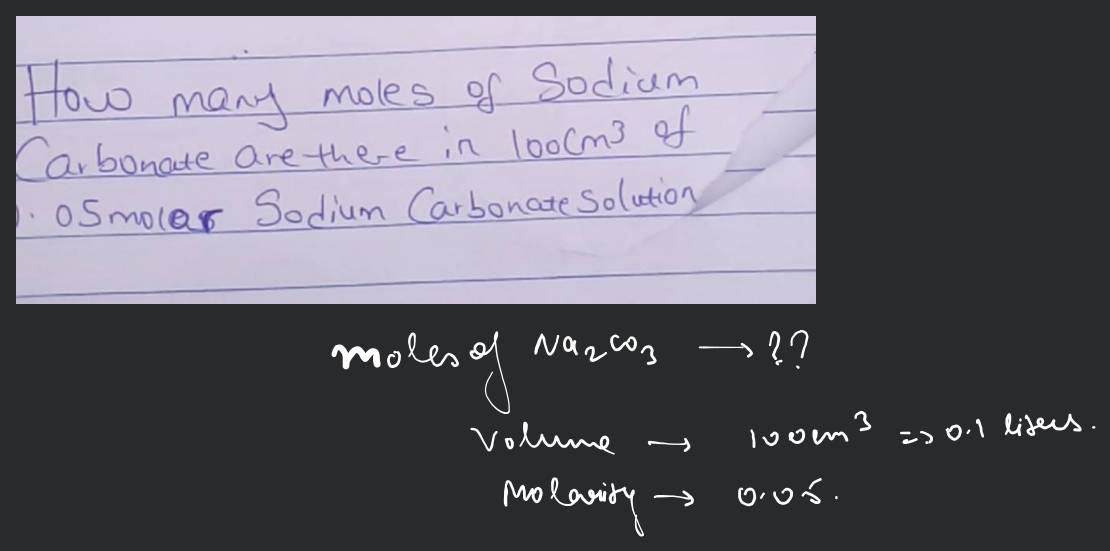 How many moles of Sodium
Carbonate are there in 100Cm³ of
0.05molar Sodium Carbonate Solution
moles of Na₂CO₃ → ??
Volume → 100cm³ => 0.1 liters.
Molarity → 0.05.